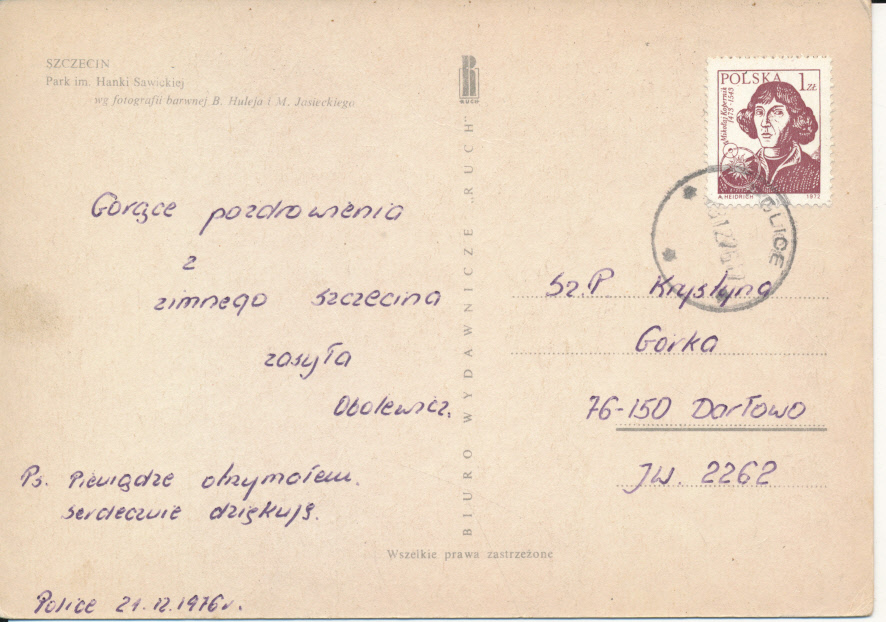 SZCZECIN
Park im. Hanki Sawickiej
wg fotografii barwnej B. Huleja i M. Jasieckiego
RUCH
BIURO WYDAWNICZE „RUCH”
POLSKA 1 ZŁ
Mikołaj Kopernik
1473-1543
A. HEIDRICH 1972
POLICE
Gorące pozdrowienia
z
zimnego szczecina
zasyła
Obolewicz.
Ps. Pieniądze otrzymałem.
serdecznie dziękuję.
Police 21.12.1976r.
Sz.P. Krystyna
Gorka
76-150 Darłowo
JW. 2262
Wszelkie prawa zastrzeżone